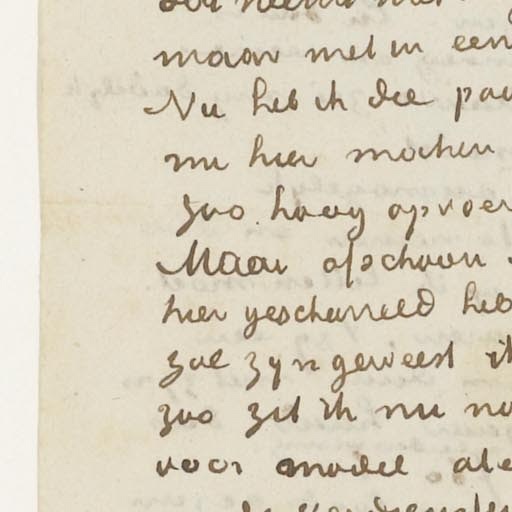 maar met in een
Nu heb ik die pa
nu hier mochten
zoo hoog opvoer
Maar ofschoon
hier gescharreld heb
zal zyn geweest ik
zoo zit ik nu no
voor model ale